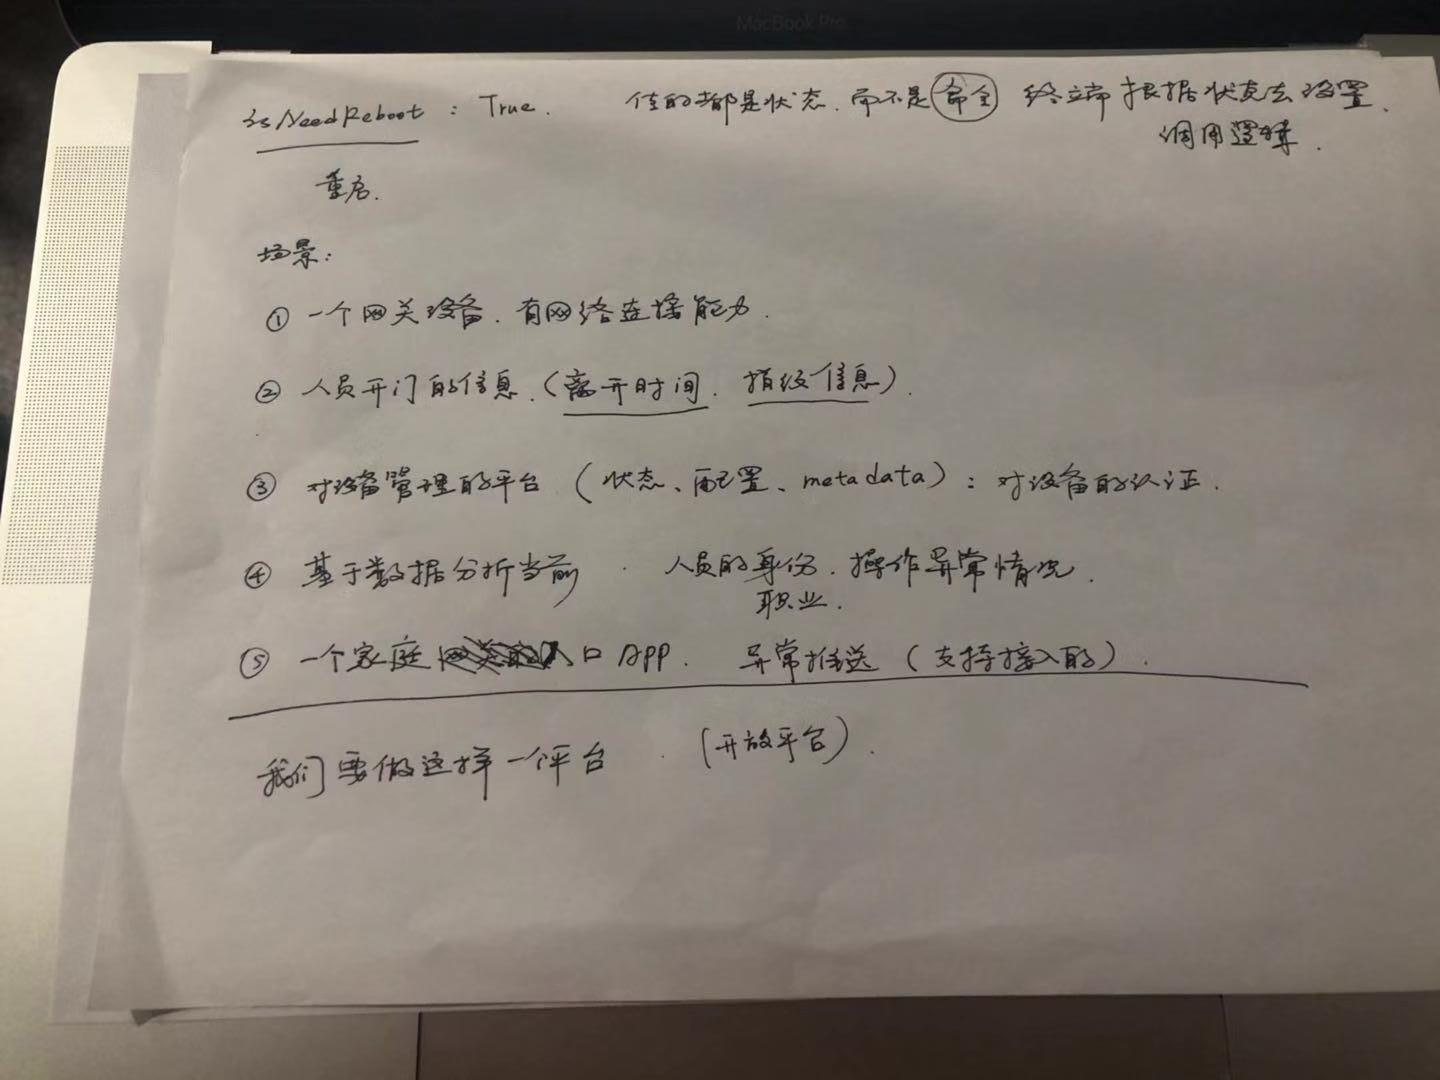 MacBook Pro
isNeedReboot : True. 传的都是状态.而不是命令 终端根据状态去设置.
调用逻辑.
重启.
场景:
① 一个网关设备.有网络连接能力.
② 人员开门的信息.(离开时间.指纹信息).
③ 对设备管理的平台 (状态、配置、metadata): 对设备的认证.
④ 基于数据分析当前 . 人员的身份.操作异常情况.
职业.
⑤ 一个家庭入口 APP. 异常推送 (支持接入的).
我们要做这样一个平台 . (开放平台).